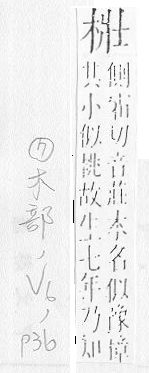 側切音莊木名似豫樟
其小似桃故生七年乃知
⑦木部, V6, p36